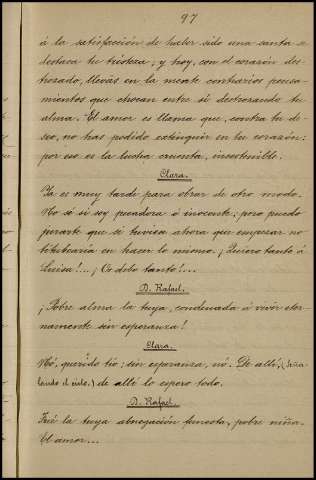 97
á la satisfacción de haber sido una santa se
destaca tu tristeza; y hoy, con el corazón des-
trozado, llevas en la mente contrarios pensa-
mientos que chocan entre sí destrozando tu
alma. El amor es llama que, contra tu de-
seo, no has podido extinguir en tu corazón:
por eso es la lucha cruenta, insostenible.
Clara.
Ya es muy tarde para obrar de otro modo.
No sé si soy pecadora ó inocente; pero puedo
jurarte que si tuviera ahora que empezar no
titubearía en hacer lo mismo. ¡Quiero tanto á
Luisa!... ¡Os debo tanto!...
D. Rafael.
¡Pobre alma la tuya, condenada á vivir eter-
namente sin esperanza!
Clara.
Nó, querido tío; sin esperanza, nó. De allí, (seña-
lando el cielo.) de allí lo espero todo.
D. Rafael.
Fué la tuya abnegación funesta, pobre niña.
El amor...